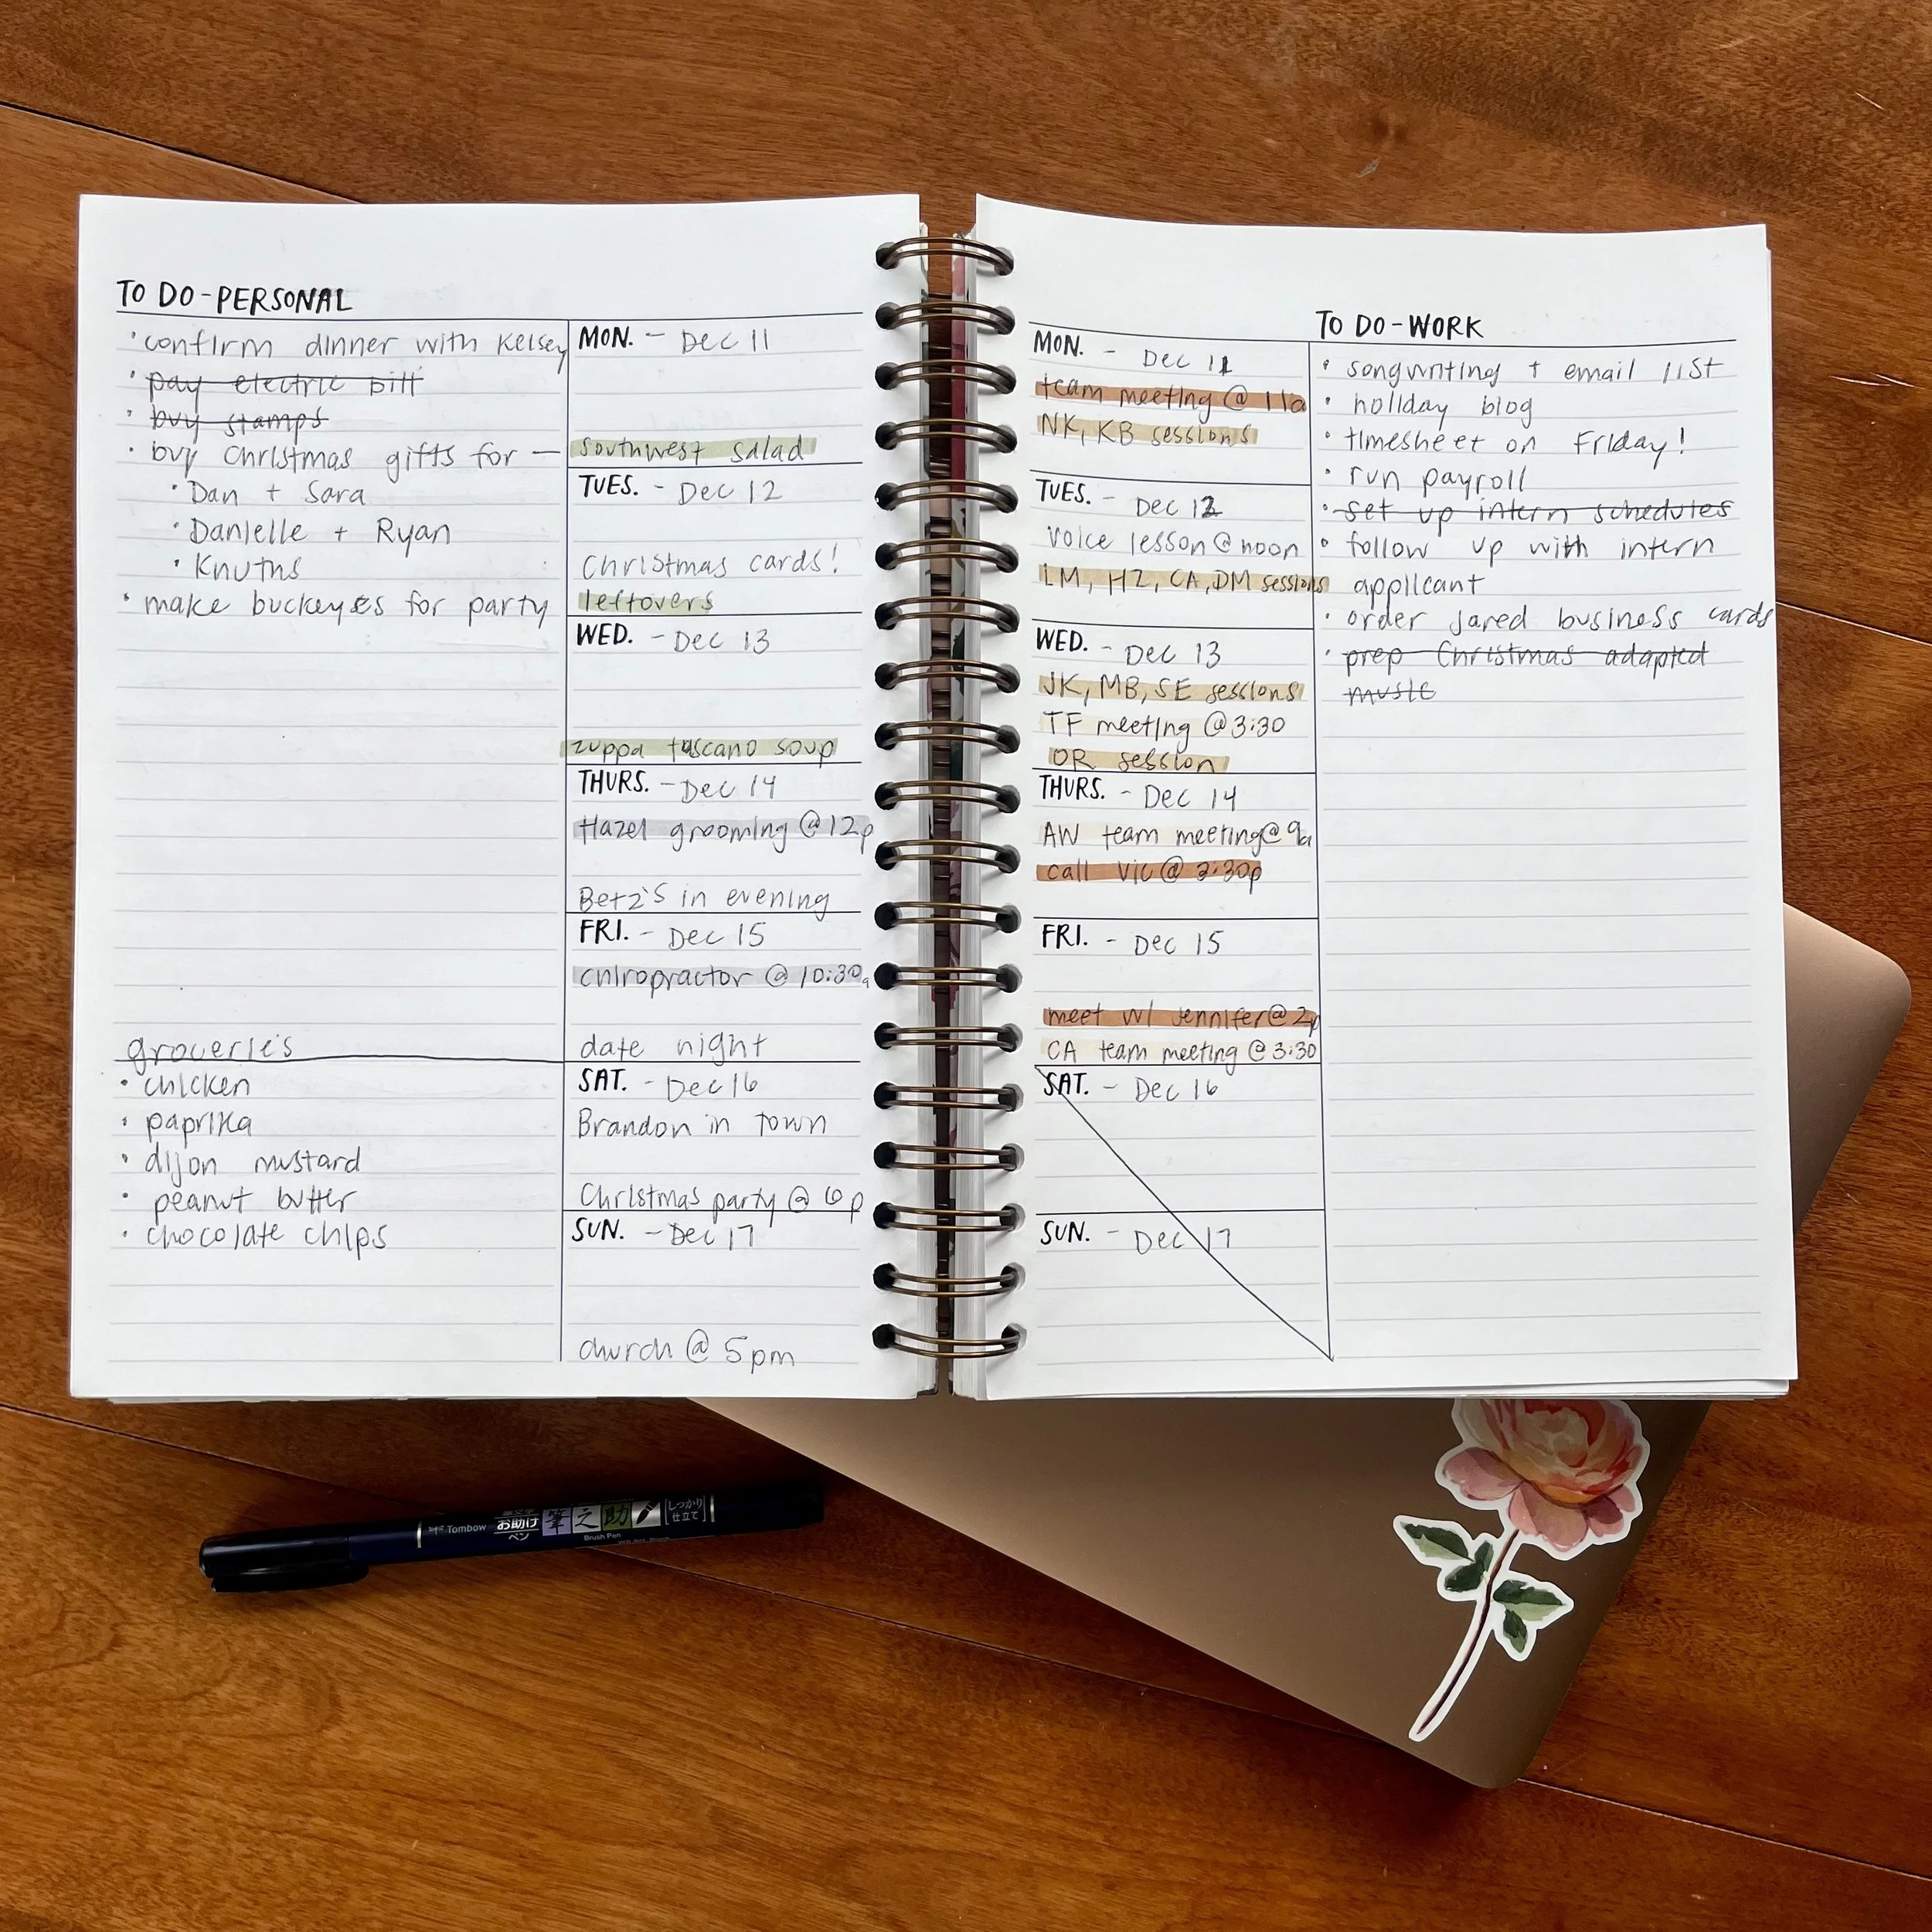 TO DO - PERSONAL
· confirm dinner with Kelsey
· pay electric bill
· buy stamps
· buy Christmas gifts for —
· Dan + Sara
· Danielle + Ryan
· Knuths
· make buckeyes for party
groceries
· chicken
· paprika
· dijon mustard
· peanut butter
· chocolate chips
MON. - Dec 11
southwest salad
TUES. - Dec 12
Christmas cards!
leftovers
WED. - Dec 13
zuppa tuscano soup
THURS. - Dec 14
Hazel grooming @ 12p
Betz's in evening
FRI. - Dec 15
chiropractor @ 10:30a
date night
SAT. - Dec 16
Brandon in town
Christmas party @ 6p
SUN. - Dec 17
church @ 5pm
MON. - Dec 11
team meeting @ 11a
NK, KB sessions
TUES. - Dec 12
voice lesson @ noon
LM, HZ, CA, DM sessions
WED. - Dec 13
JK, MB, SE sessions
TF meeting @ 3:30
OR session
THURS. - Dec 14
AW team meeting @ 9a
call Vic @ 2:30p
FRI. - Dec 15
meet w/ Jennifer @ 2p
CA team meeting @ 3:30
SAT. - Dec 16
SUN. - Dec 17
TO DO - WORK
· songwriting + email list
· holiday blog
· timesheet on Friday!
· run payroll
· set up intern schedules
· follow up with intern
applicant
· order Jared business cards
· prep Christmas adapted
music
Tombow お助け ペン 筆之助 しっかり 仕立て
Brush Pen